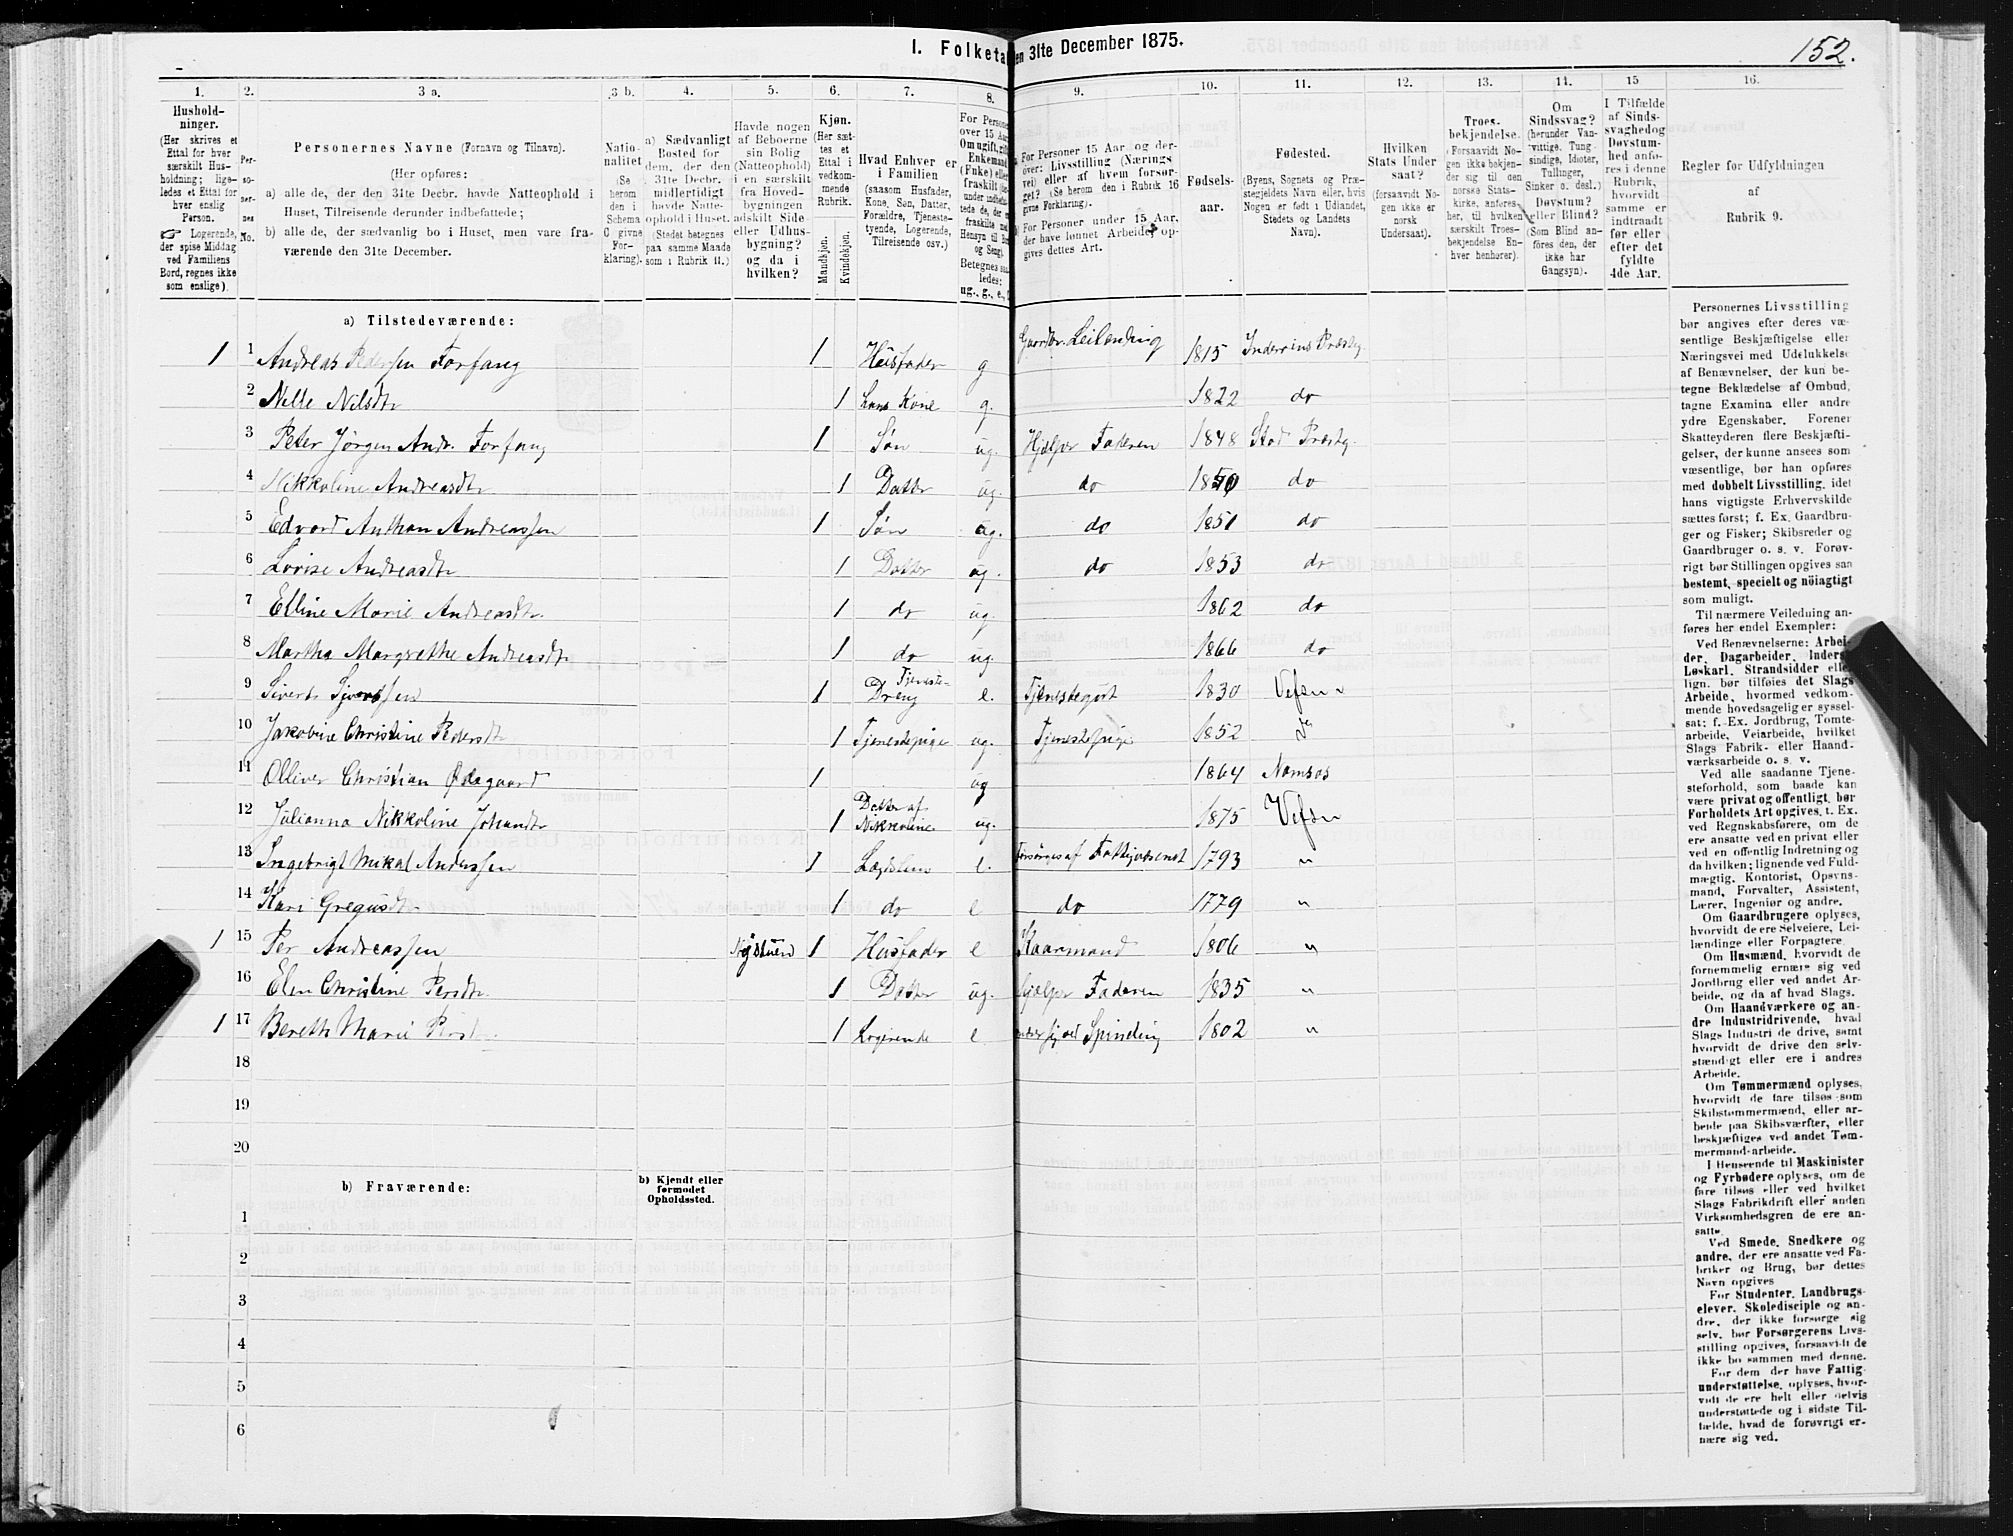 I. Folketa en 31te December 1875.
152.
1. 2. 3 a. 3 b. 4. 5. 6. 7. 8. 9. 10. 11. 12. 13. 14. 15 16.
Hushold-
ninger.
(Her skrives et
Ettal for hver
særskilt Hus-
holdning; lige-
ledes et Ettal for
hver enslig
Person.
☞ Logerende,
der spise Middag
ved Familiens
Bord, regnes ikke
som enslige).
Per-
so-
ner-
nes
No.
Personernes Navne (Fornavn og Tilnavn).
(Her opføres:
a) alle de, der den 31te Decbr. havde Natteophold i
Huset, Tilreisende derunder indbefattede;
b) alle de, der sædvanlig bo i Huset, men vare fra-
værende den 31te December.
Natio-
nalitet
(Se
herom
den i
Schema
C givne
For-
klaring).
a) Sædvanligt
Bosted for
dem, der den
31te Decbr.
midlertidigt
havde Natte-
ophold i Huset.
(Stedet betegnes
paa samme Maade
som i Rubrik 11.)
Havde nogen
af Beboerne
sin Bolig
(Natteophold)
i en særskilt
fra Hoved-
bygningen
adskilt Side-
eller Udhus-
bygning?
og da i
hvilken?
Kjøn.
(Her sæt-
tes et
Ettal i
vedkom-
mende
Rubrik.
Mandkjøn.
Kvindekjøn.
Hvad Enhver er
i Familien
(saasom Husfader,
Kone, Søn, Datter,
Forældre, Tjeneste-
tyende, Logerende,
Tilreisende osv.)
For Persone
over 15 Aar
Om ugift, gift
Enkemand
(Enke) elle
fraskilt
Betegnes saa
ledes:
ug., g., e.,
For Personer 15 Aar og der-
over: Livsstilling (Nærings
vei) eller af hvem forsør-
get? (Se herom den i Rubrik 16
givne Forklaring).
For Personer under 15 Aar,
der have lønnet Arbeide, op-
gives dettes Art.
Fødsels-
aar.
Fødested.
(Byens, Sognets og Præ-
stegjeldets Navn eller, hvis
Nogen er født i Udlandet,
Stedets og Landets
Navn).
Hvilken
Stats Under
saat?
(forsaavidt No-
gen ikke er
norsk
Undersaat).
Troes-
bekjendelse.
(Forsaavidt No-
gen ikke bekjen-
der sig til den
norske Stats-
kirke, anføres-
her, til hvilken
særskilt Troes-
bekjendelse En-
hver henhører).
Om
Sindssvag?
(herunder Van-
vittige, Tung-
sindige, Idioter,
Tullinger,
Sinker o. desl.)
Døvstum?
eller Blind?
(Som Blind an-
føres den, der
ikke har
Gangsyn).
I Tilfælde
af Sinds-
svaghedog
Døvstum-
hed anfø-
res i denne
Rubrik,
hvorvidt
samme er
indtraadt
før eller
efter det
fyldte
4de Aar.
Regler for Udfyldningen
af
Rubrik 9.
a) Tilstedeværende:
1 1 Andreas Pedersen Forfang 1 Husfader g Gaardbr. Leilending 1815 Inderøens Præstg
2 Nille Nilsdtr 1 hans Kone g. 1822 do
3 Peter Jørgen Andr. Forfang 1 Søn ug. Hjelper Faderen 1848 Stod Præstg.
4 Nikkoline Andreasdtr 1 Datter ug. do 1850 do
5 Edvard Anthon Andreassen 1 Søn ug. do 1851 do
6 Lovise Andreasdtr 1 Datter ug. do 1853 do
7 Elline Marie Andreasdtr. 1 do ug. 1862 do
8 Martha Margrethe Andreasdtr 1 do ug. 1866 do
9 Sivert Sivertsen 1 Tjeneste- Dreng e. Tjenestegut 1830 Vefsn
10 Jakobine Christine Pedersdtr 1 Tjenestepige ug. Tjenestepige 1852
11 Olliver Christian Ødegaard 1 ug 1864 Namsos
12 Julianna Nikkoline Johansdtr 1 Datter af Nikkoline ug. 1875 Vefsn
13 Ingebrigt Mikal Anderssen 1 Lægdslem e. Forsørges af Fattigvæsenet 1793 "
14 Kari Gregusdtr 1 do e do 1779 "
1 15 Per Andreassen Nystuen 1 Husfader e Kaarmand 1806 "
16 Elen Christine Persdtr 1 Datter ug. hjælper Faderen 1835 "
1 17 Bereth Marie 1 Logerende e. Spinding 1802 "
18
19
20
b) Fraværende:
b) Kjendt eller
formodet
Opholdssted.
1
2
3
4
5
6
Personernes Livsstilling
bør angives efter deres væ-
sentlige Beskjæftigelse eller
Næringsvei med Udelukkelse
af Benævnelser, der kun be-
tegne Beklædelse af Ombud,
tagne Examina eller andre
ydre Egenskaber. Forener
Skatteyderen flere Beskjæfti-
gelser, der kunne ansees som
væsentlige, bør han opføres
med dobbelt Livsstilling, idet
hans vigtigste Erhvervskilde
sættes først; f. Ex. Gaardbru-
ger og Fisker; Skibsreder og
Gaardbruger o. s. v. Forøv-
rigt bør Stillingen opgives saa
bestemt, specielt og nöiagtigt
som muligt.
Til nærmere Veiledning an-
føres her endel Exempler:
Ved Benævnelserne: Arbei-
der, Dagarbeider, Inderst
Løskarl, Strandsidder eller
lign. bør tilføies det Slags
Arbeide, hvormed vedkom-
mende hovedsagelig er syssel-
sat; f. Ex. Jordbrug, Tomte-
arbeide, Veiarbeide, hvilket
Slags Fabrik- eller Haand-
værksarbeide o. s. v.
Ved alle saadanne Tjene-
steforhold, som baade kan
være privat og offentligt, bør
Forholdets Art opgives, t. Ex.
ved Regnskabsførere, om de
ere ansatte ved en privat eller
ved en offentlig Indretning og
da hvilken; lignende ved Fuld-
mægtig, Kontorist, Opsyns-
mand, Forvalter, Assistent,
Lærer, Ingeniør og andre.
Om Gaardbrugere oplyses,
hvorvidt de ere Selveiere, Lei-
lændinge eller Forpagtere.
Om Husmænd, hvorvidt de
fornemmelig ernære sig ved
Jordbrug eller ved andet Ar-
beide, og da af hvad Slags.
Om Haandværkere og an-
dre Industridrivende, hvad
Slags Industri de drive, samt
hvorvidt de drive den selv-
stændigt eller ere i andres
Arbeide.
Om Tømmermænd oplyses,
hvorvidt de fare tilsøs som
Skibstømmermænd, eller ar-
beide paa Skibsværfter, eller
beskjæftiges ved andet Tøm-
mermand-arbeide.
I Henseende til Maskinister
og Fyrbødere oplyses, om de
fare tilsøs eller ved hvilket
Slags Fabrikdrift eller anden
Virksomhedsgren de ere an-
satte.
Ved Smede, Snedkere og
andre, der ere ansatte ved Fa-
briker og Brug, bør dettes
Navn opgives
For Studenter, Landbrugs-
elever, Skoledisciple og an-
dre, der ikke forsørge sig
selv, bør Forsørgerens Livs-
stilling opgives, forsaavidt de
ikke bo sammen med denne.
For dem, der have Fattig-
understøttelse, oplyses, hvor-
vidt de ere helt eller delvis
understøttede og i sidste Til-
fælde, hvad de forøvrigt er-
nære sig ved.